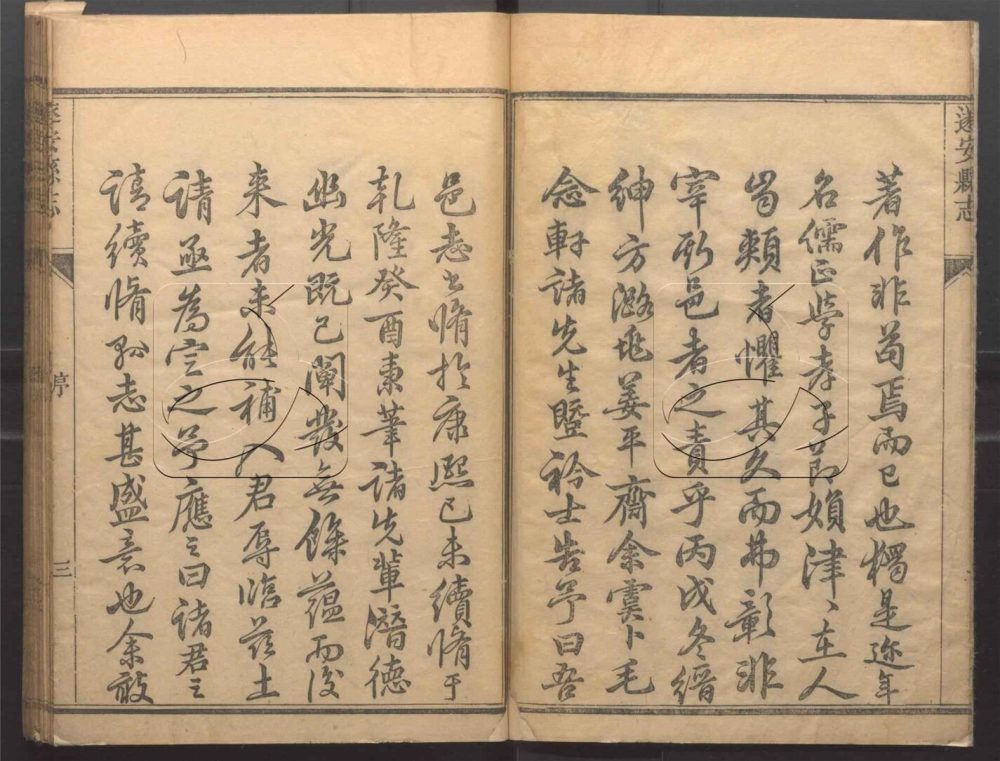 遂安縣志
著作非苟焉而已也獨是近年
名儒正學孝子節婦津津在人
者懼其久而弗彰非
宰斯邑者之責乎丙戌冬縉
紳方潞姜平齋余雲卜毛
念軒諸先生暨衿士告予曰吾
邑志書脩於康熙己未續脩于
乾隆癸酉秉筆諸先輩潛德
幽光既已闡發無餘蘊而後
來者未能補入君辱臨茲土
請亟為定之予應之曰諸君之
請續脩縣志甚盛意也余敢
遂安縣志
序
三